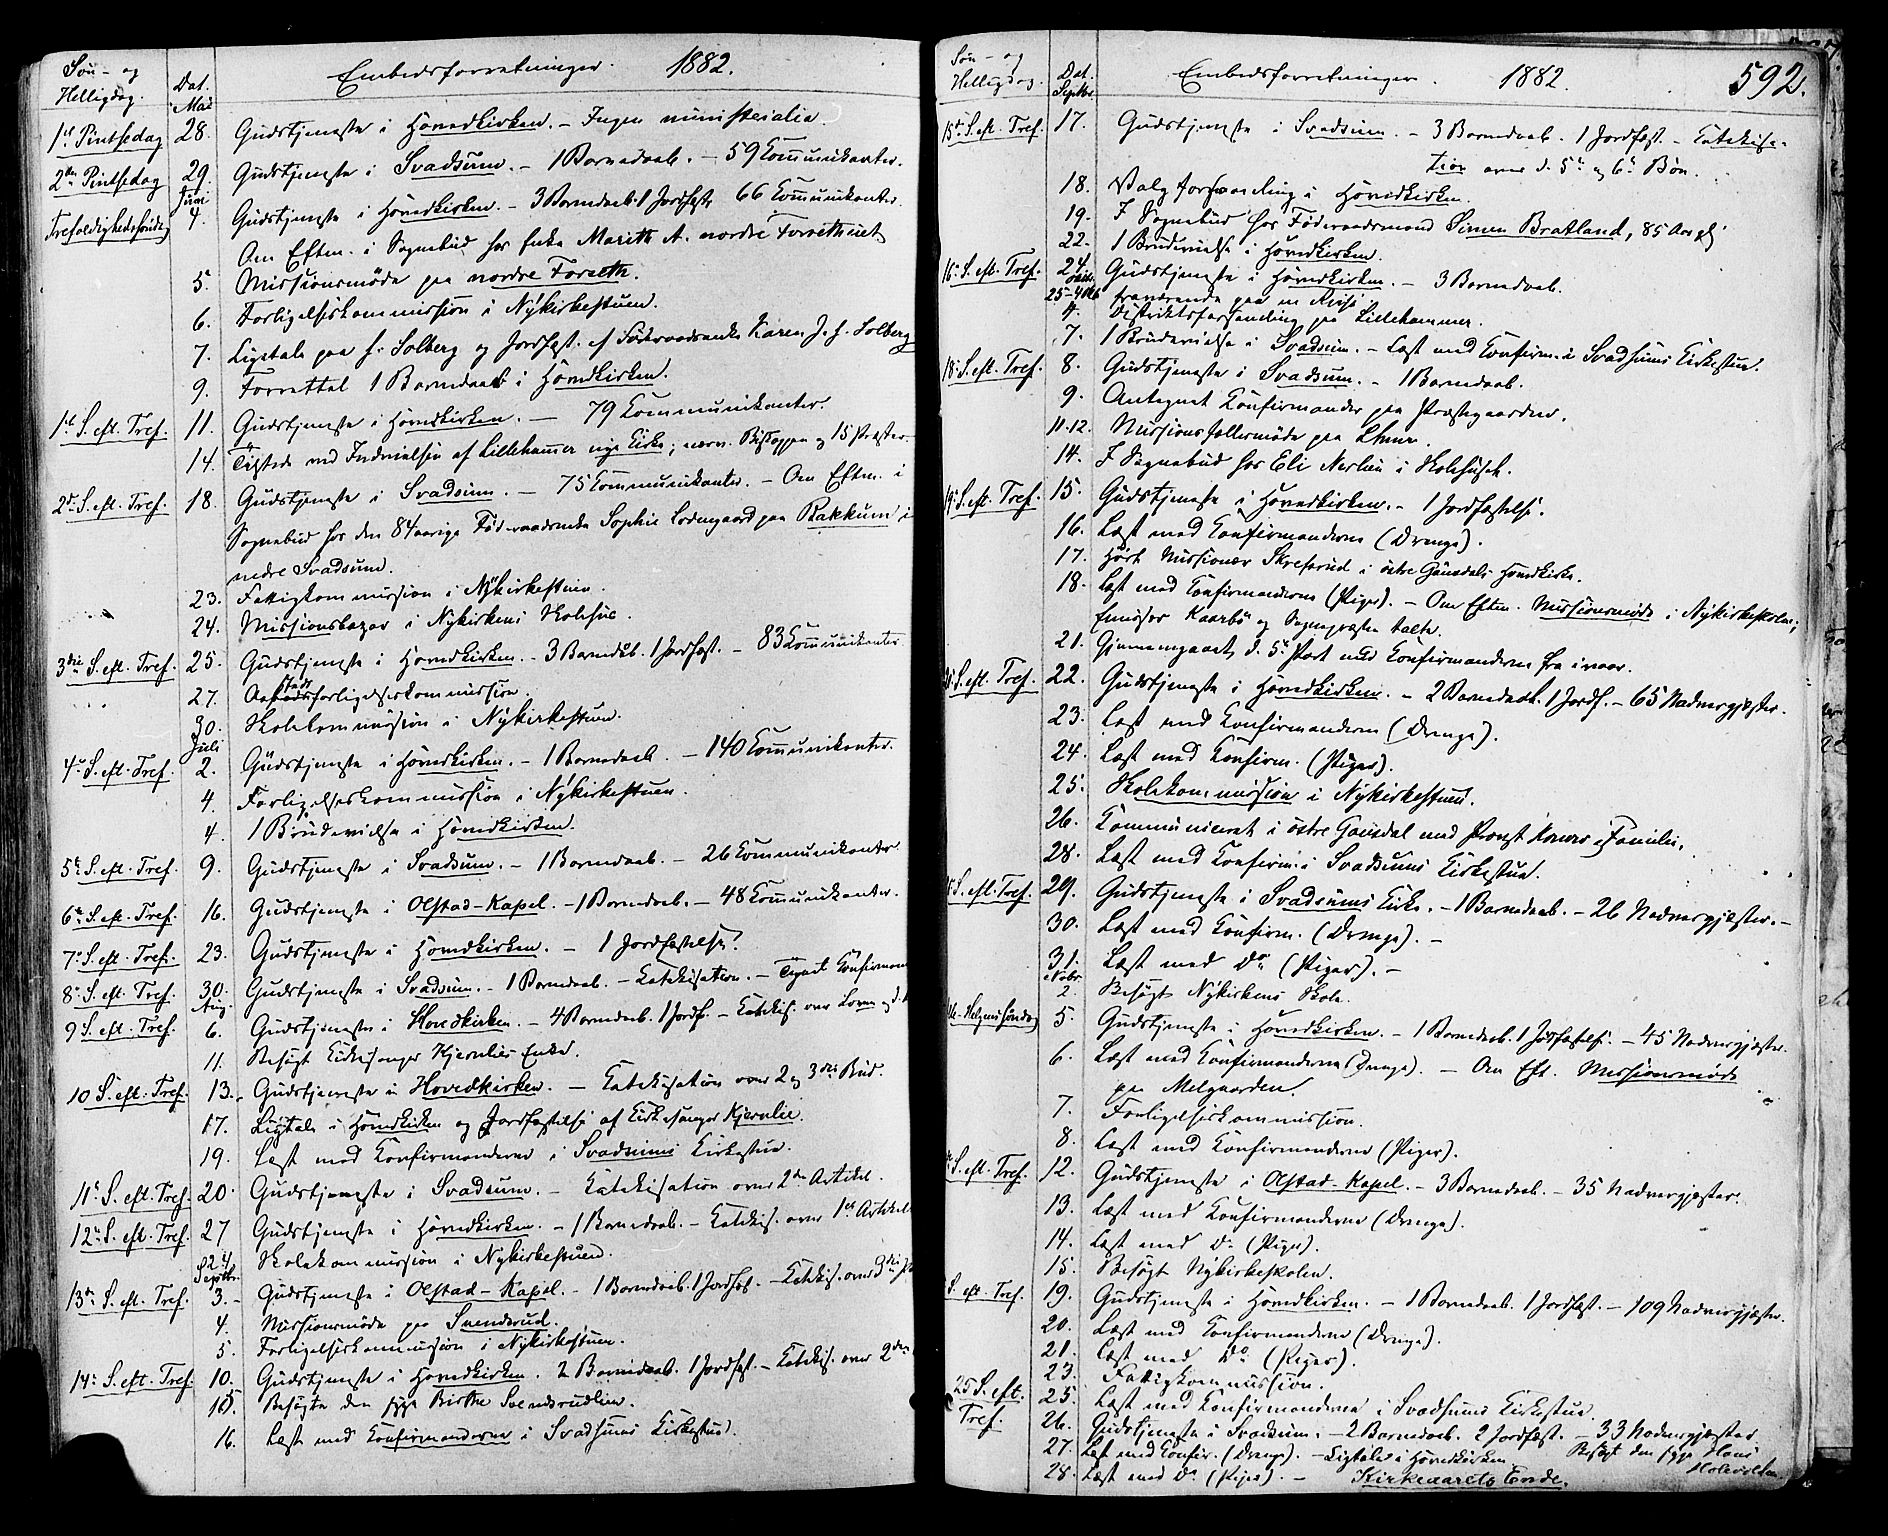 Søn- og
Helligdag.
Dat.
Embedsforretninger. 1882.
Mai
1st Pintsedag 28. Gudstjeneste i Hovedkirken. – Ingen ministerialia.
2den Pintsedag 29. Gudstjeneste i Svadsum. – 1 Barnedaab. – 59 Communikanter.
Juni
Trefoldighedssøndag 4. Gudstjeneste i Hovedkirken. – 3 Barnedaab. 1 Jordfæst. 66 Communikanter.
Om Efterm. i Sognebud hos Enke Marith A. nordre Forseth
5. Missionsmøde paa nordre Forseth.
6. Forligelseskommission i Nykirkestuen.
7. Ligtale paa Solberg og Jordfæst. af Føderaadsenke Karen J. Solberg
9. Forrettet 1 Barnedaab i Hovedkirken.
1st S. eft. Tref. 11. Gudstjeneste i Hovedkirken. – 79 Communikanter.
14. Tilstede ved Indvielsen af Lillehammer nye Kirke; nærv. Biskoppen og 15 Præster.
2den S. eft. Tref. 18. Gudstjeneste i Svadsum. – 75 Communikanter. – Om Efterm. i
Sognebud hos den 84 aarige Føderaadsenke Sophie paa Bakkum i
nedre Svadsum.
23. Fattigkommission i Nykirkestuen.
24. Missionsbazar i Nykirkens Skolehus.
3die S. eft. Tref. 25. Gudstjeneste i Hovedkirken. – 3 Barnedåb. 1 Jordfæst. – 83 Communikanter
27. forligelseskommission.
30. Skolekommission i Nykirkestuen.
Juli
4de S. eft. Tref. 2. Gudstjeneste i Hovedkirken. – 1 Barnedaab. – 140 Communikanter.
4. Forligelseskommission i Nykirkestuen.
4. 1 Brudevielse i Hovedkirken.
5te S. eft. Tref. 9. Gudstjeneste i Svadsum. – 1 Barnedaab. – 26 Communikanter
6te S. eft. Tref. 16. Gudstjeneste i Olstad-Kapel. – 1 Barnedaab. – 48 Communikanter.
7de S. eft. Tref. 23. Gudstjeneste i Hovedkirken. – 1 Jordfæstelse.
8de S. eft. Tref. 30. Gudstjeneste i Svadsum. – 1 Barnedaab. – Katekisation. –
Aug.
9 S. eft. Tref. 6. Gudstjeneste i Hovedkirken. – 4 Barnedaab. 1 Jordf. – Katekis. over Loven og
11. Besøgt Kirkesanger Kjernlies Enke.
10 S. eft. Tref. 13. Gudstjeneste i Hovedkirken. – Katekisation over 2 og 3die Bud.
17. Ligtale i Hovedkirken og Jordfæstelse af Kirkesanger Kjernlie.
19. Læst med Konfirmanderne i Svadsums Kirkestue.
11te S. eft. Tref. 20. Gudstjeneste i Svadsum. – Katekisation over 2den Artikel.
12te S. eft. Tref. 27 Gudstjeneste i Hovedkirken. – 1 Barnedaab. – Katekis. over 1st Artikel
Skolekommission i Nykirkestuen.
Septbr.
13de S. eft. Tref. 3. – Gudstjeneste i Olstad-Kapel. – 1 Barnedaab. 1 Jordfæs. – Katekis. over 3die
4. Missionsmøde paa Svendsrud.
5. Forligelseskommission i Nykirkestuen.
14de S. eft. Tref. 10. Gudstjeneste i Hovedkirken. 2 Barnedaab. 1 Jordfæst. – Katekis. over 2den
15. Besøgte den syge Birthe Svendsrudlien.
16. Læst med Konfirmanderne i Svadsums Kirkestue.
Søn- og
Helligdag.
Dat.
Septbr.
Embedsforretninger. 1882. 592.
15de S. eft. Tref. 17. Gudstjeneste i Svadsum. – 3 Barnedaab. 1 Jordfæst. – Katekisa-
tion over d. 5te og 6te Bøn.
18. Valgforhandling i Hovedkirken.
19. I Sognebud hos Føderaadsmand Simen Bratland, 85 Aar gl.
22. 1 Brudevielse i Hovedkirken.
16de S. eft. Tref. 24 Gudstjeneste i Hovedkirken. – 3 Barnedaab.
25–4 fraværende paa en Reise
4. Distriktsforsamling paa Lillehammer.
7. 1 Brudevielse i Svadsum. – Læst med Konfirm. i Svadsums Kirkestue.
18de S. eft. Tref. 8. Gudstjeneste i Svadsum. – 1 Barnedaab.
9. Antegnet Konfirmander paa Præstegaarden.
11-12. Missionsfællesmøde paa Lhmer.
14. I Sognebud hos Eli Nerlien i Skolehuset.
19de S. eft. Tref. 15. Gudstjeneste i Hovedkirken. – 1 Jordfæstelse.
16. Læst med Konfirmanderne (Drenge).
17. Hørt Missionær Skrefsrud i østre Gausdals Hovedkirke.
18. Læst med Konfirmanderne (Piger). – Om Efterm. Missionsmøde i Nykirkeskolen;
Emissær Kaarbø og Sognepræsten talte.
21. Gjennemgaaet d. 5te Part med Konfirmanderne fra ivaar.
20de S. eft. Tref. 22. Gudstjeneste i Hovedkirken. – 2 Barnedaab. 1 Jordf. – 65 Nadvergjæster.
23. Læst med Konfirmanderne (Drenge).
24. Læst med Konfirm. (Piger).
25. Skolekommission i Nykirkestuen.
26. Kommuniceret i østre Gausdal med Provst Familie.
28. Læst med Konfirm. i Svadsums Kirkestue.
S. eft. Tref. 29. Gudstjeneste i Svadsums Kirke. – 1 Barnedaab. – 26 Nadvergjæster. –
30. Læst med Konfirm. (Drenge). –
31. Læst med Do (Piger). –
Novbr.
2. Besøgt Nykirkens Skole.
Alle-Helgens Søndag 5. Gudstjeneste i Hovedkirken. – 1 Barnedaab. 1 Jordfæstelse. – 45 Nadvergjæster.
6. Læst med Konfirmanderne (Drenge). – Om Eft. Missionsmøde
paa Melgaarden.
7. Forligelseskommission.
8. Læst med Konfirmanderne (Piger).
S. eft. Tref. 12. Gudstjeneste i Olstad-Kapel. – 3 Barnedaab. – 35 Nadvergjæster.
13. Læst med Konfirmanderne (Drenge).
14. Læst med Do (Piger).
15. Besøgt Nykirkeskolen.
S. eft. Tref. 19. Gudstjeneste i Hovedkirken. – 1 Barnedaab. 1 Jordfæst. – 109 Nadvergjæster.
20. Læst med Konfirmanderne (Drenge).
21. Læst med Do (Piger).
23. Fattigkommission.
25 S. eft. Tref. 25. Læst med Konfirmanderne i Svadsums Kirkestue
26. Gudstjeneste i Svadsum. – 2 Barnedaab. 2 Jordfæst. – 33 Nadvergjæster
27. Læst med Konfir. (Drenge). – Ligtale i Hovedkirken. Besøgt den syge Hans
28. Læst med Do (Piger). – Kirkeaarets Ende.